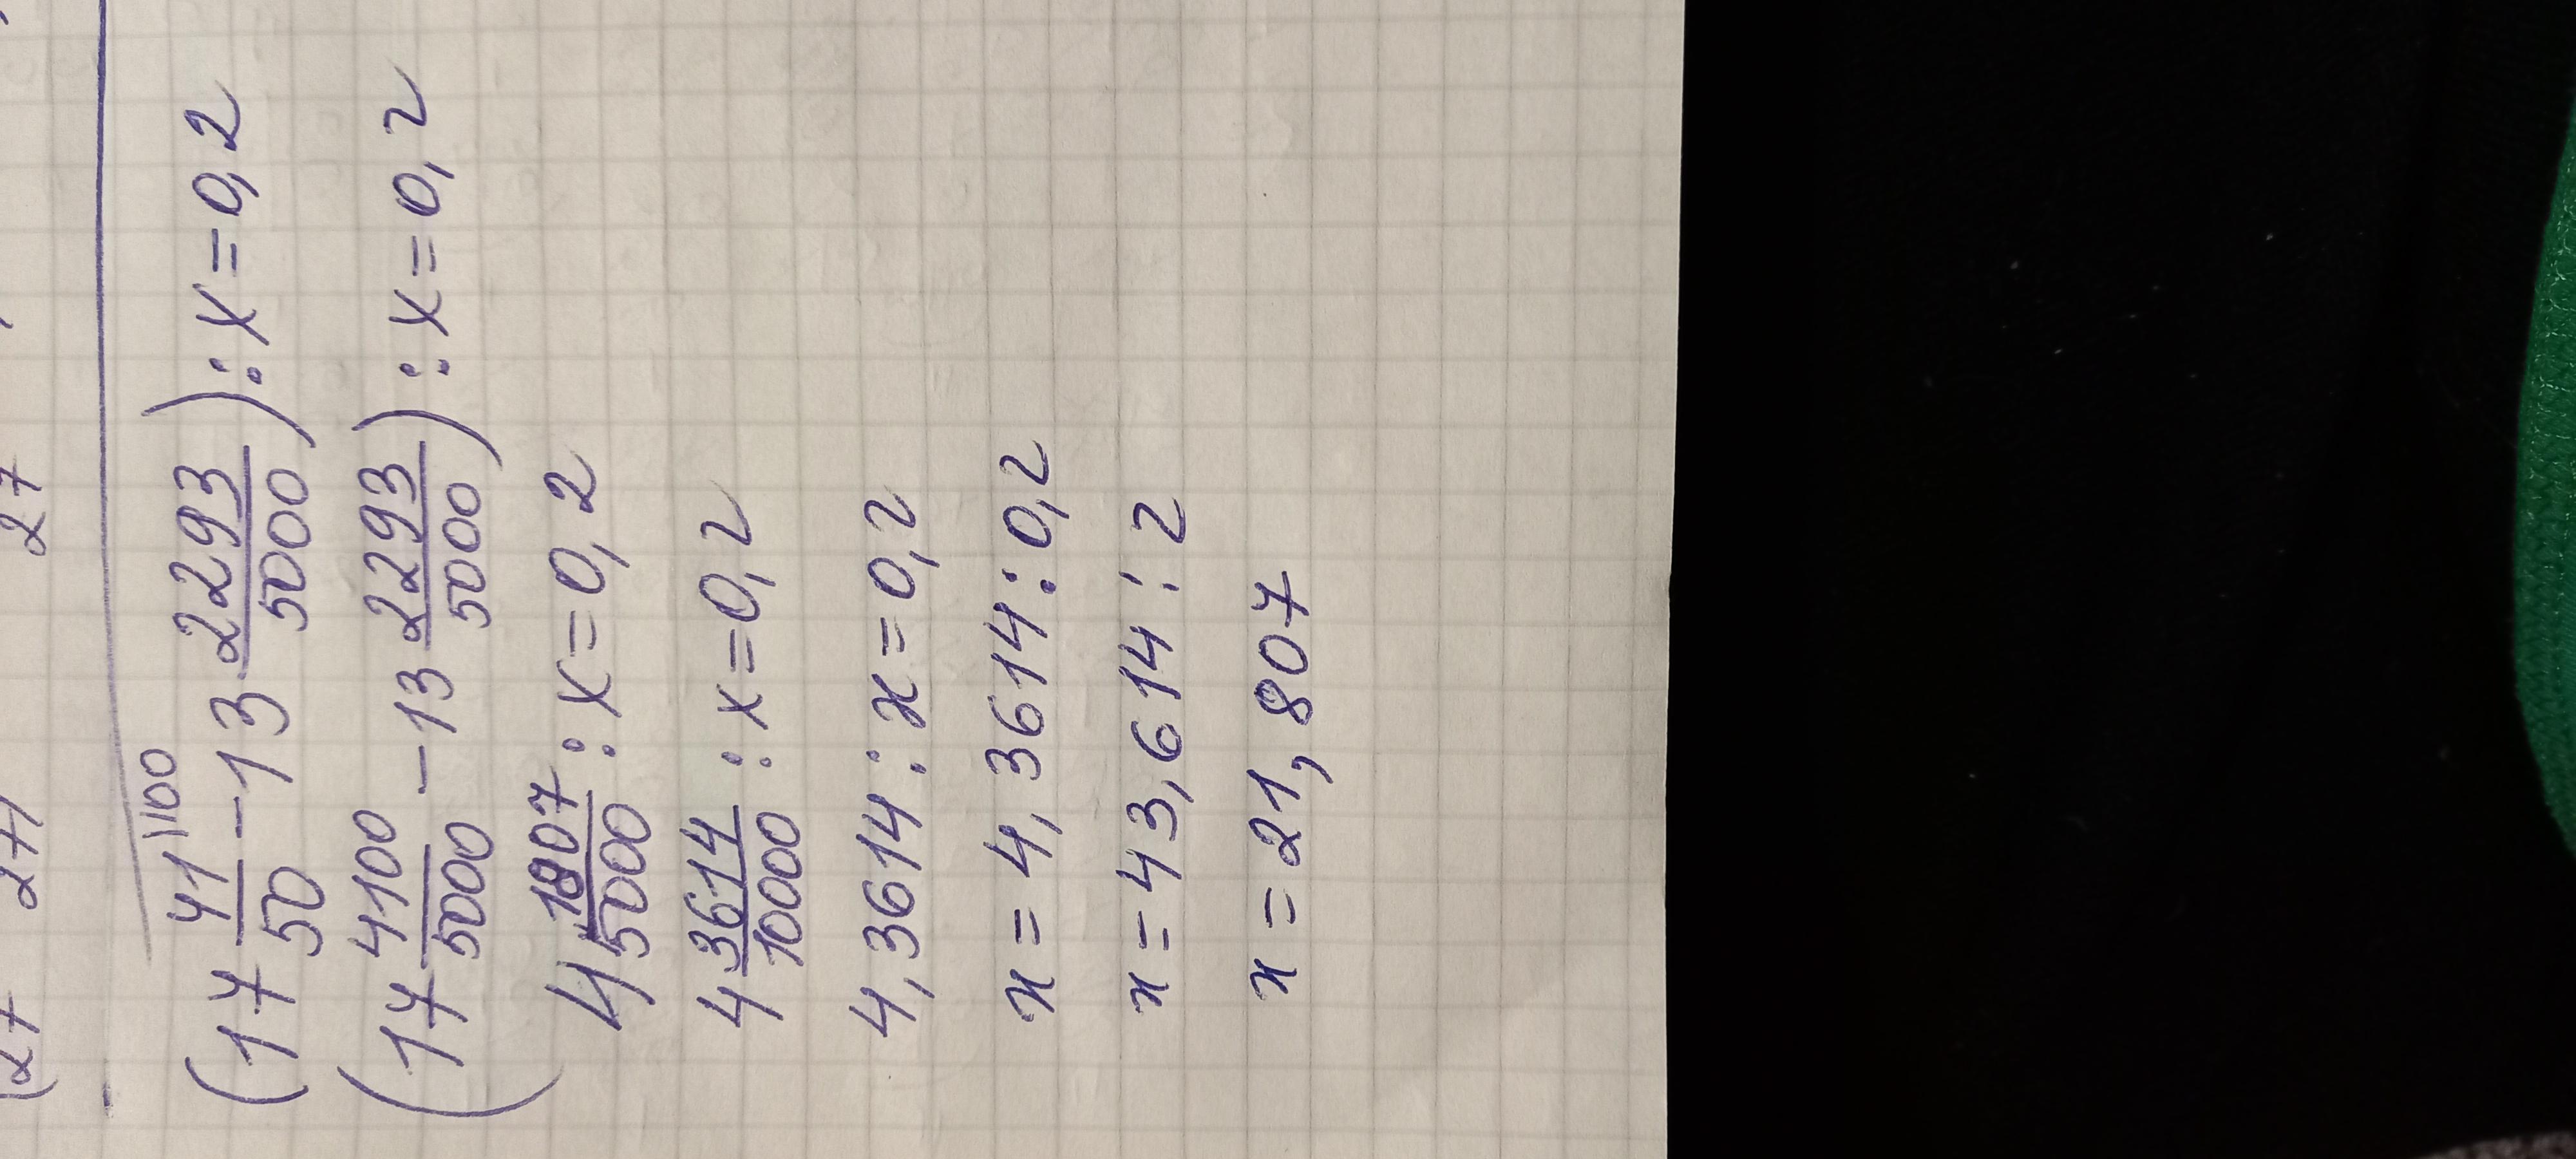 27
(27 27)
(17 41/50 \100 − 13 2293/5000) : x = 0,2
(17 4100/5000 − 13 2293/5000) : x = 0,2
4 1807/5000 : x = 0,2
4 3614/10000 : x = 0,2
4,3614 : x = 0,2
x = 4,3614 : 0,2
x = 43,614 : 2
x = 21,807